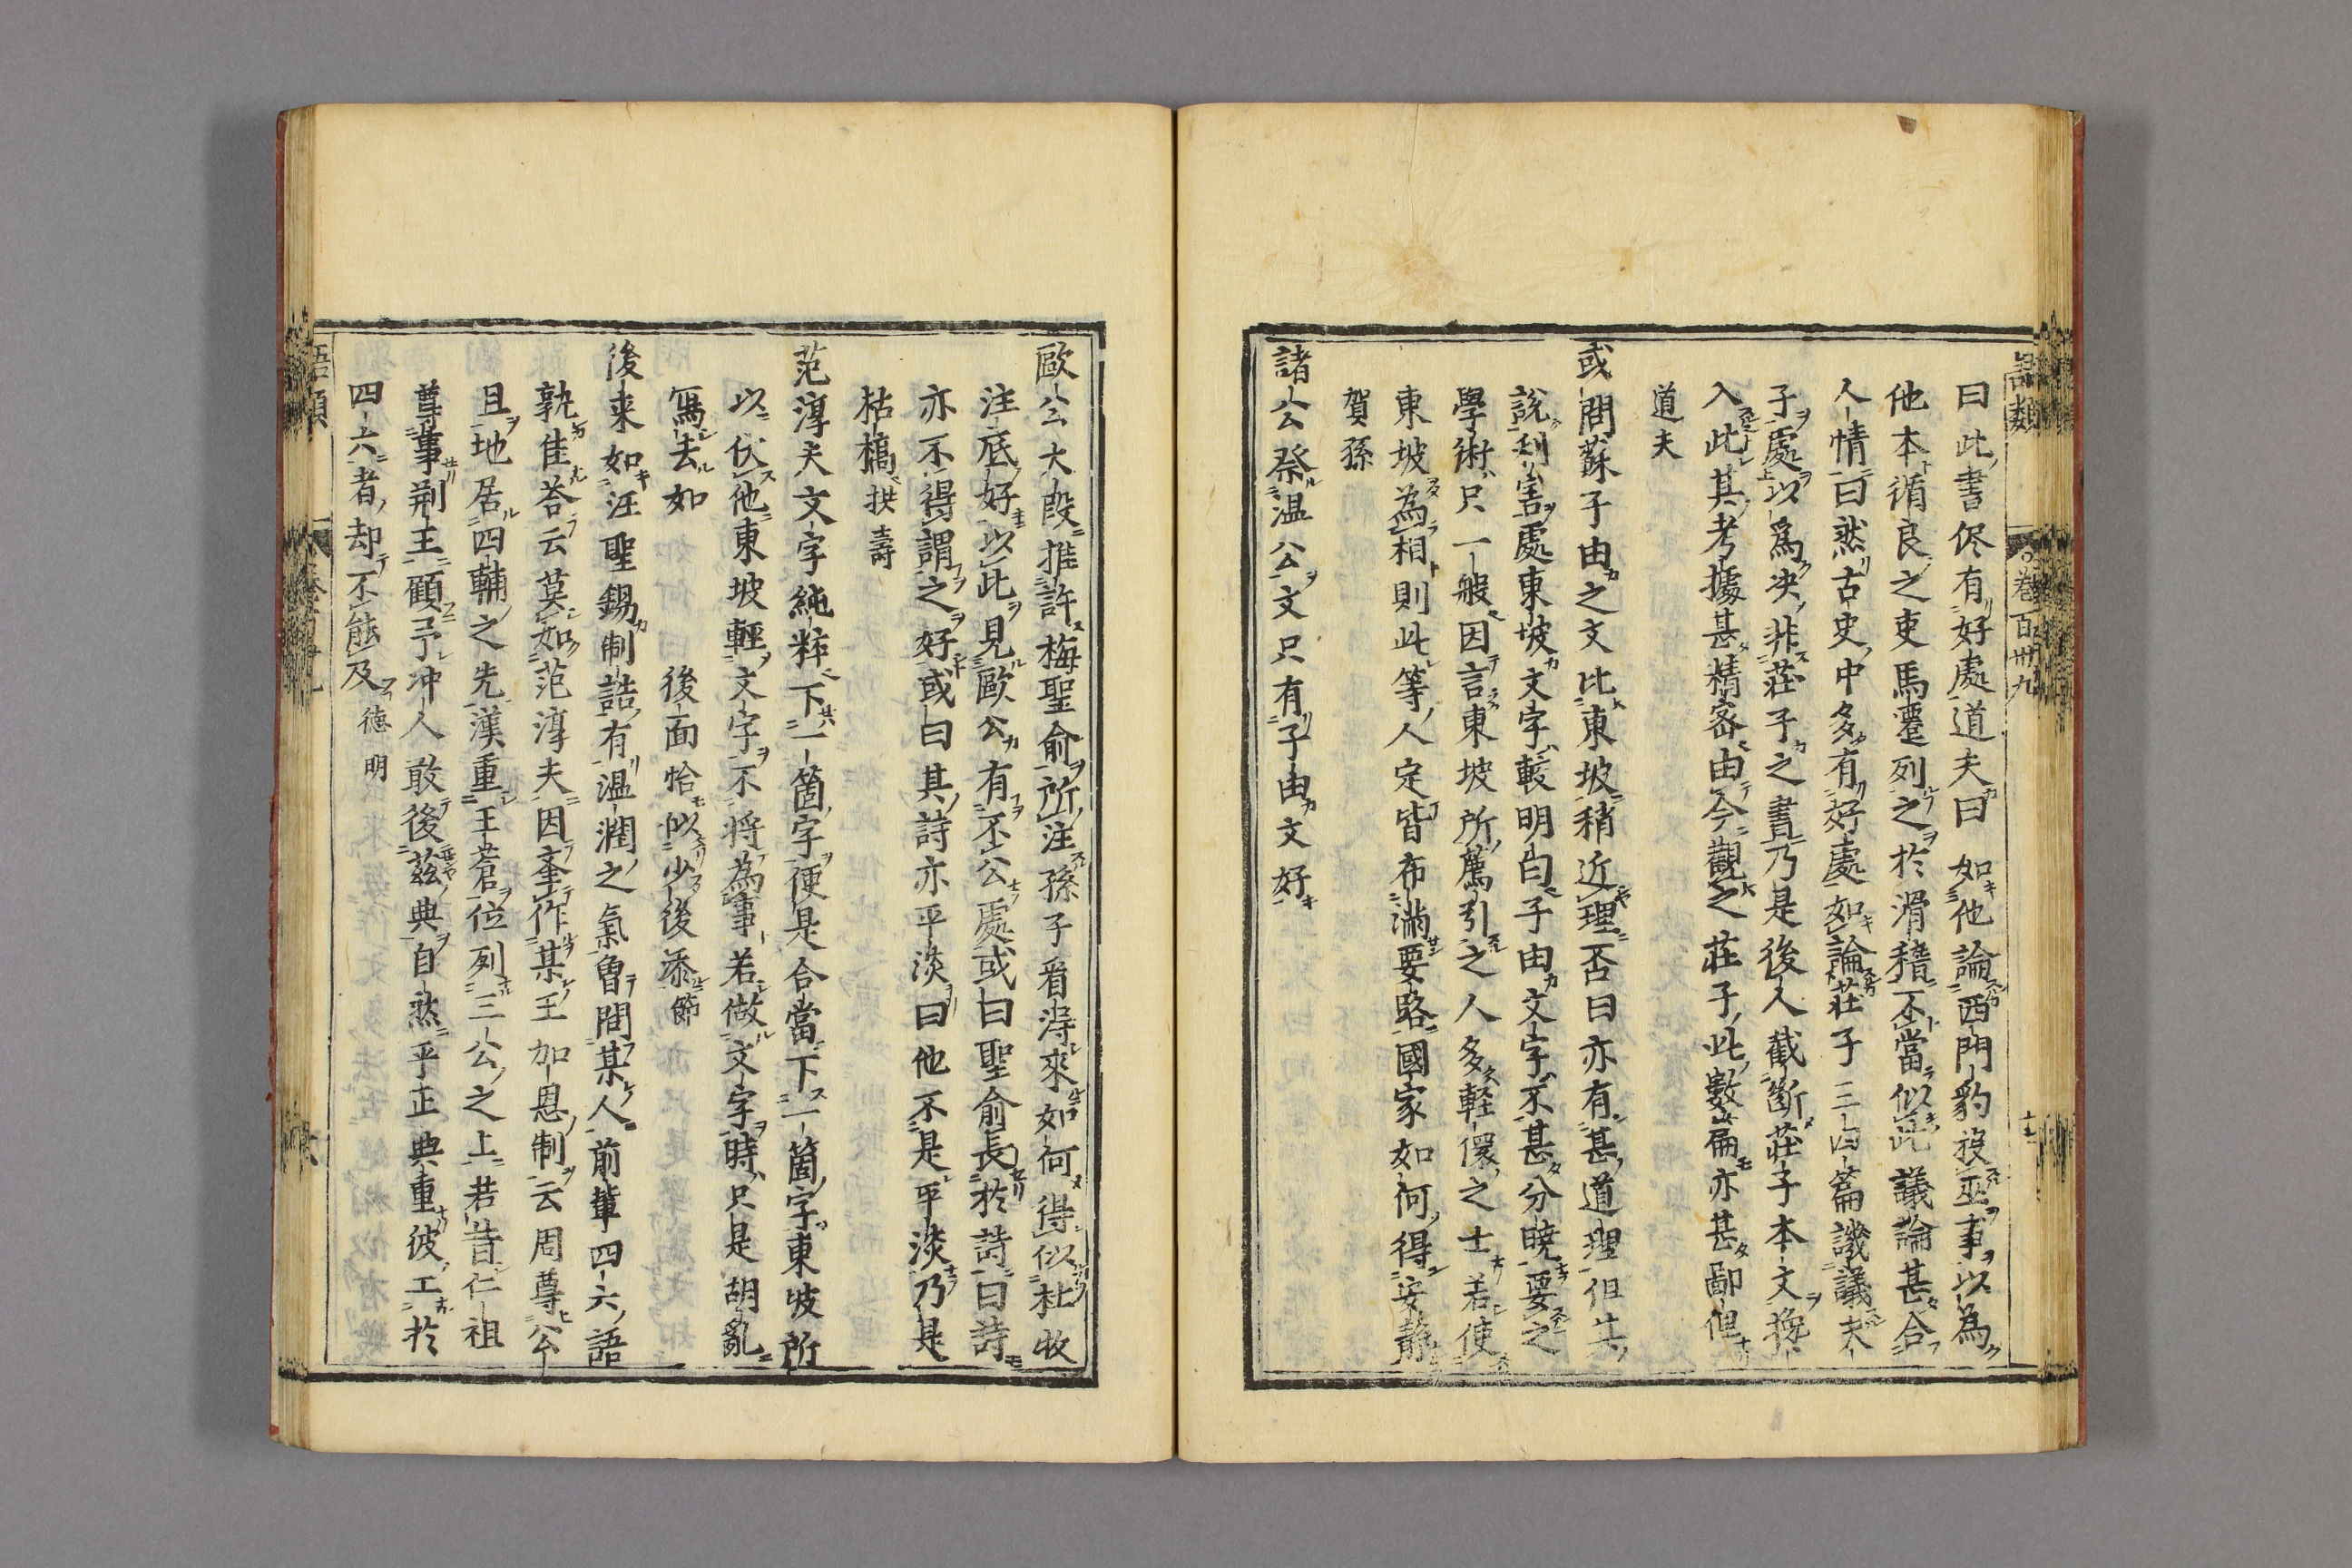 語類 卷百卅九
曰此書侭有好處道夫曰如他論西門豹投巫事以為
他本循良之吏馬遷列之於滑稽不當似此議論甚合
人情曰然古史中多有好處如論莊子三四篇譏議夫
子處以爲决非莊子之書乃是後人截斷莊子本文攙
入此其考據甚精密由今觀之莊子此數篇亦甚鄙俚
道夫
或問蘇子由之文比東坡稍近理否曰亦有甚道理但其
說利害處東坡文字較明白子由文字不甚分曉要之
學術只一般因言東坡所薦引之人多輕儇之士若使
東坡為相則此等人定皆布滿要路國家如何得安靜
賀孫
諸公祭温公文只有子由文好
歐公大段推許梅聖俞所注孫子看得來如何得似杜牧
注底好以此見歐公有不公處或曰聖俞長於詩曰詩
亦不得謂之好或曰其詩亦平淡曰他不是平淡乃是
枯槁拱壽
范淳夫文字純粹下一箇字便是合當下一箇字東坡所
以伏他東坡輕文字不將為事若做文字時只是胡亂
寫去如 後面恰似少後添節
後来如汪聖錫制誥有温潤之氣曾問某人前輩四六語
孰佳荅云莫如范淳夫因舉作某王加恩制云周尊公
且地居四輔之先漢重王蒼位列三公之上若昔仁祖
尊事荆王顧予冲人敢後茲典自然平正典重彼工於
四六者却不能及德明
語類